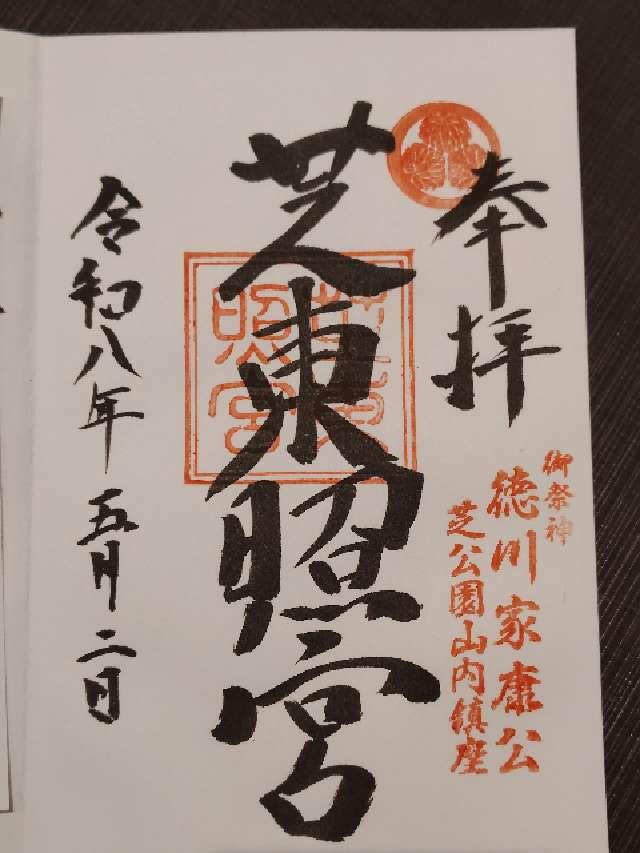 奉拝
御祭神
徳川家康公
芝公園山内鎮座
芝東照宮
芝東照宮
令和八年五月二日